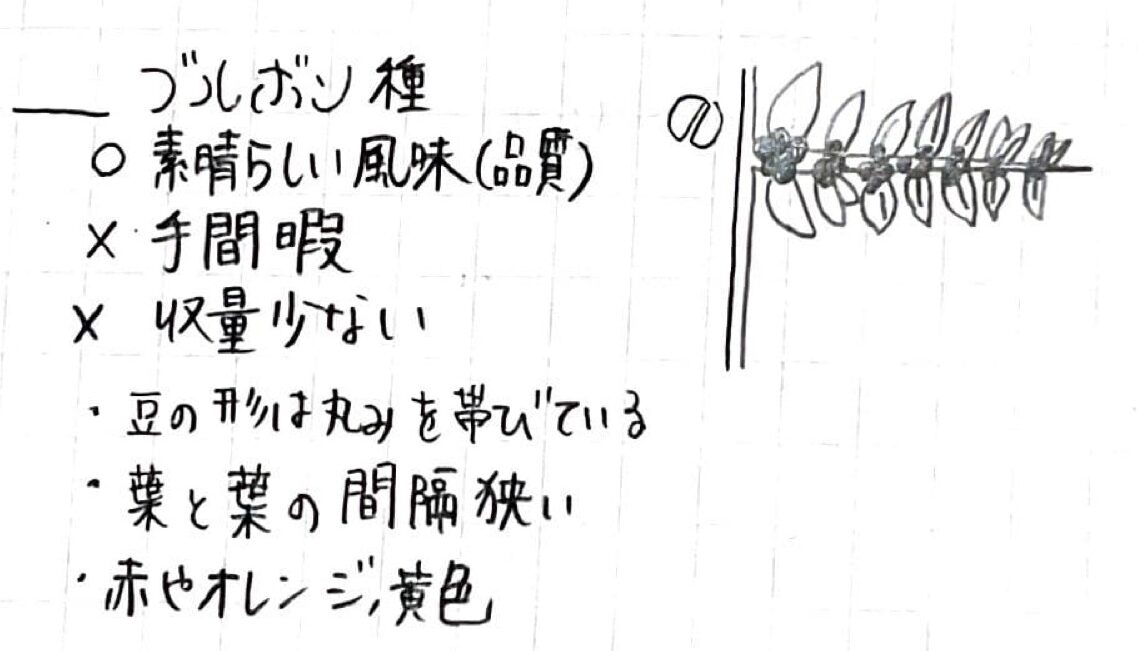 ブルボン種
○ 素晴らしい風味(品質)
× 手間暇
× 収量少ない
・豆の形は丸みを帯びている
・葉と葉の間隔狭い
・赤やオレンジ,黄色